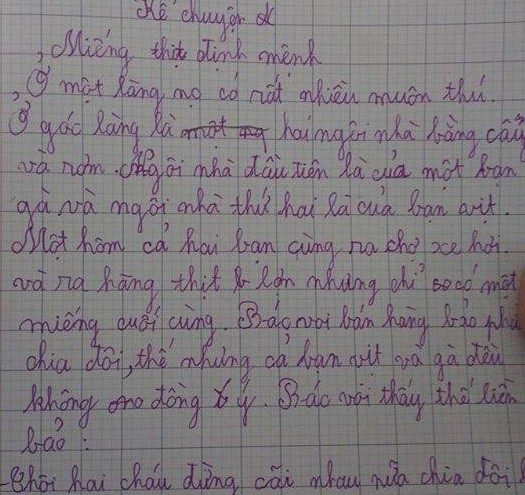 Kể chuyện
Miếng thịt định mệnh
Ở một làng nọ có rất nhiều muôn thú.
Ở góc làng là hai ngôi nhà bằng cây
và rơm. Ngôi nhà đầu tiên là của một bạn
gà và ngôi nhà thứ hai là của bạn vịt.
Một hôm cả hai bạn cùng ra chợ xe hơi.
và ra hàng thịt lợn nhưng chỉ có một
miếng cuối cùng. Bác voi bán hàng bảo phải
chia đôi, thế nhưng cả bạn vịt và gà đều
không đồng ý. Bác voi thấy thế liền
bảo:
-Thôi hai cháu đừng cãi nhau nữa chia đôi